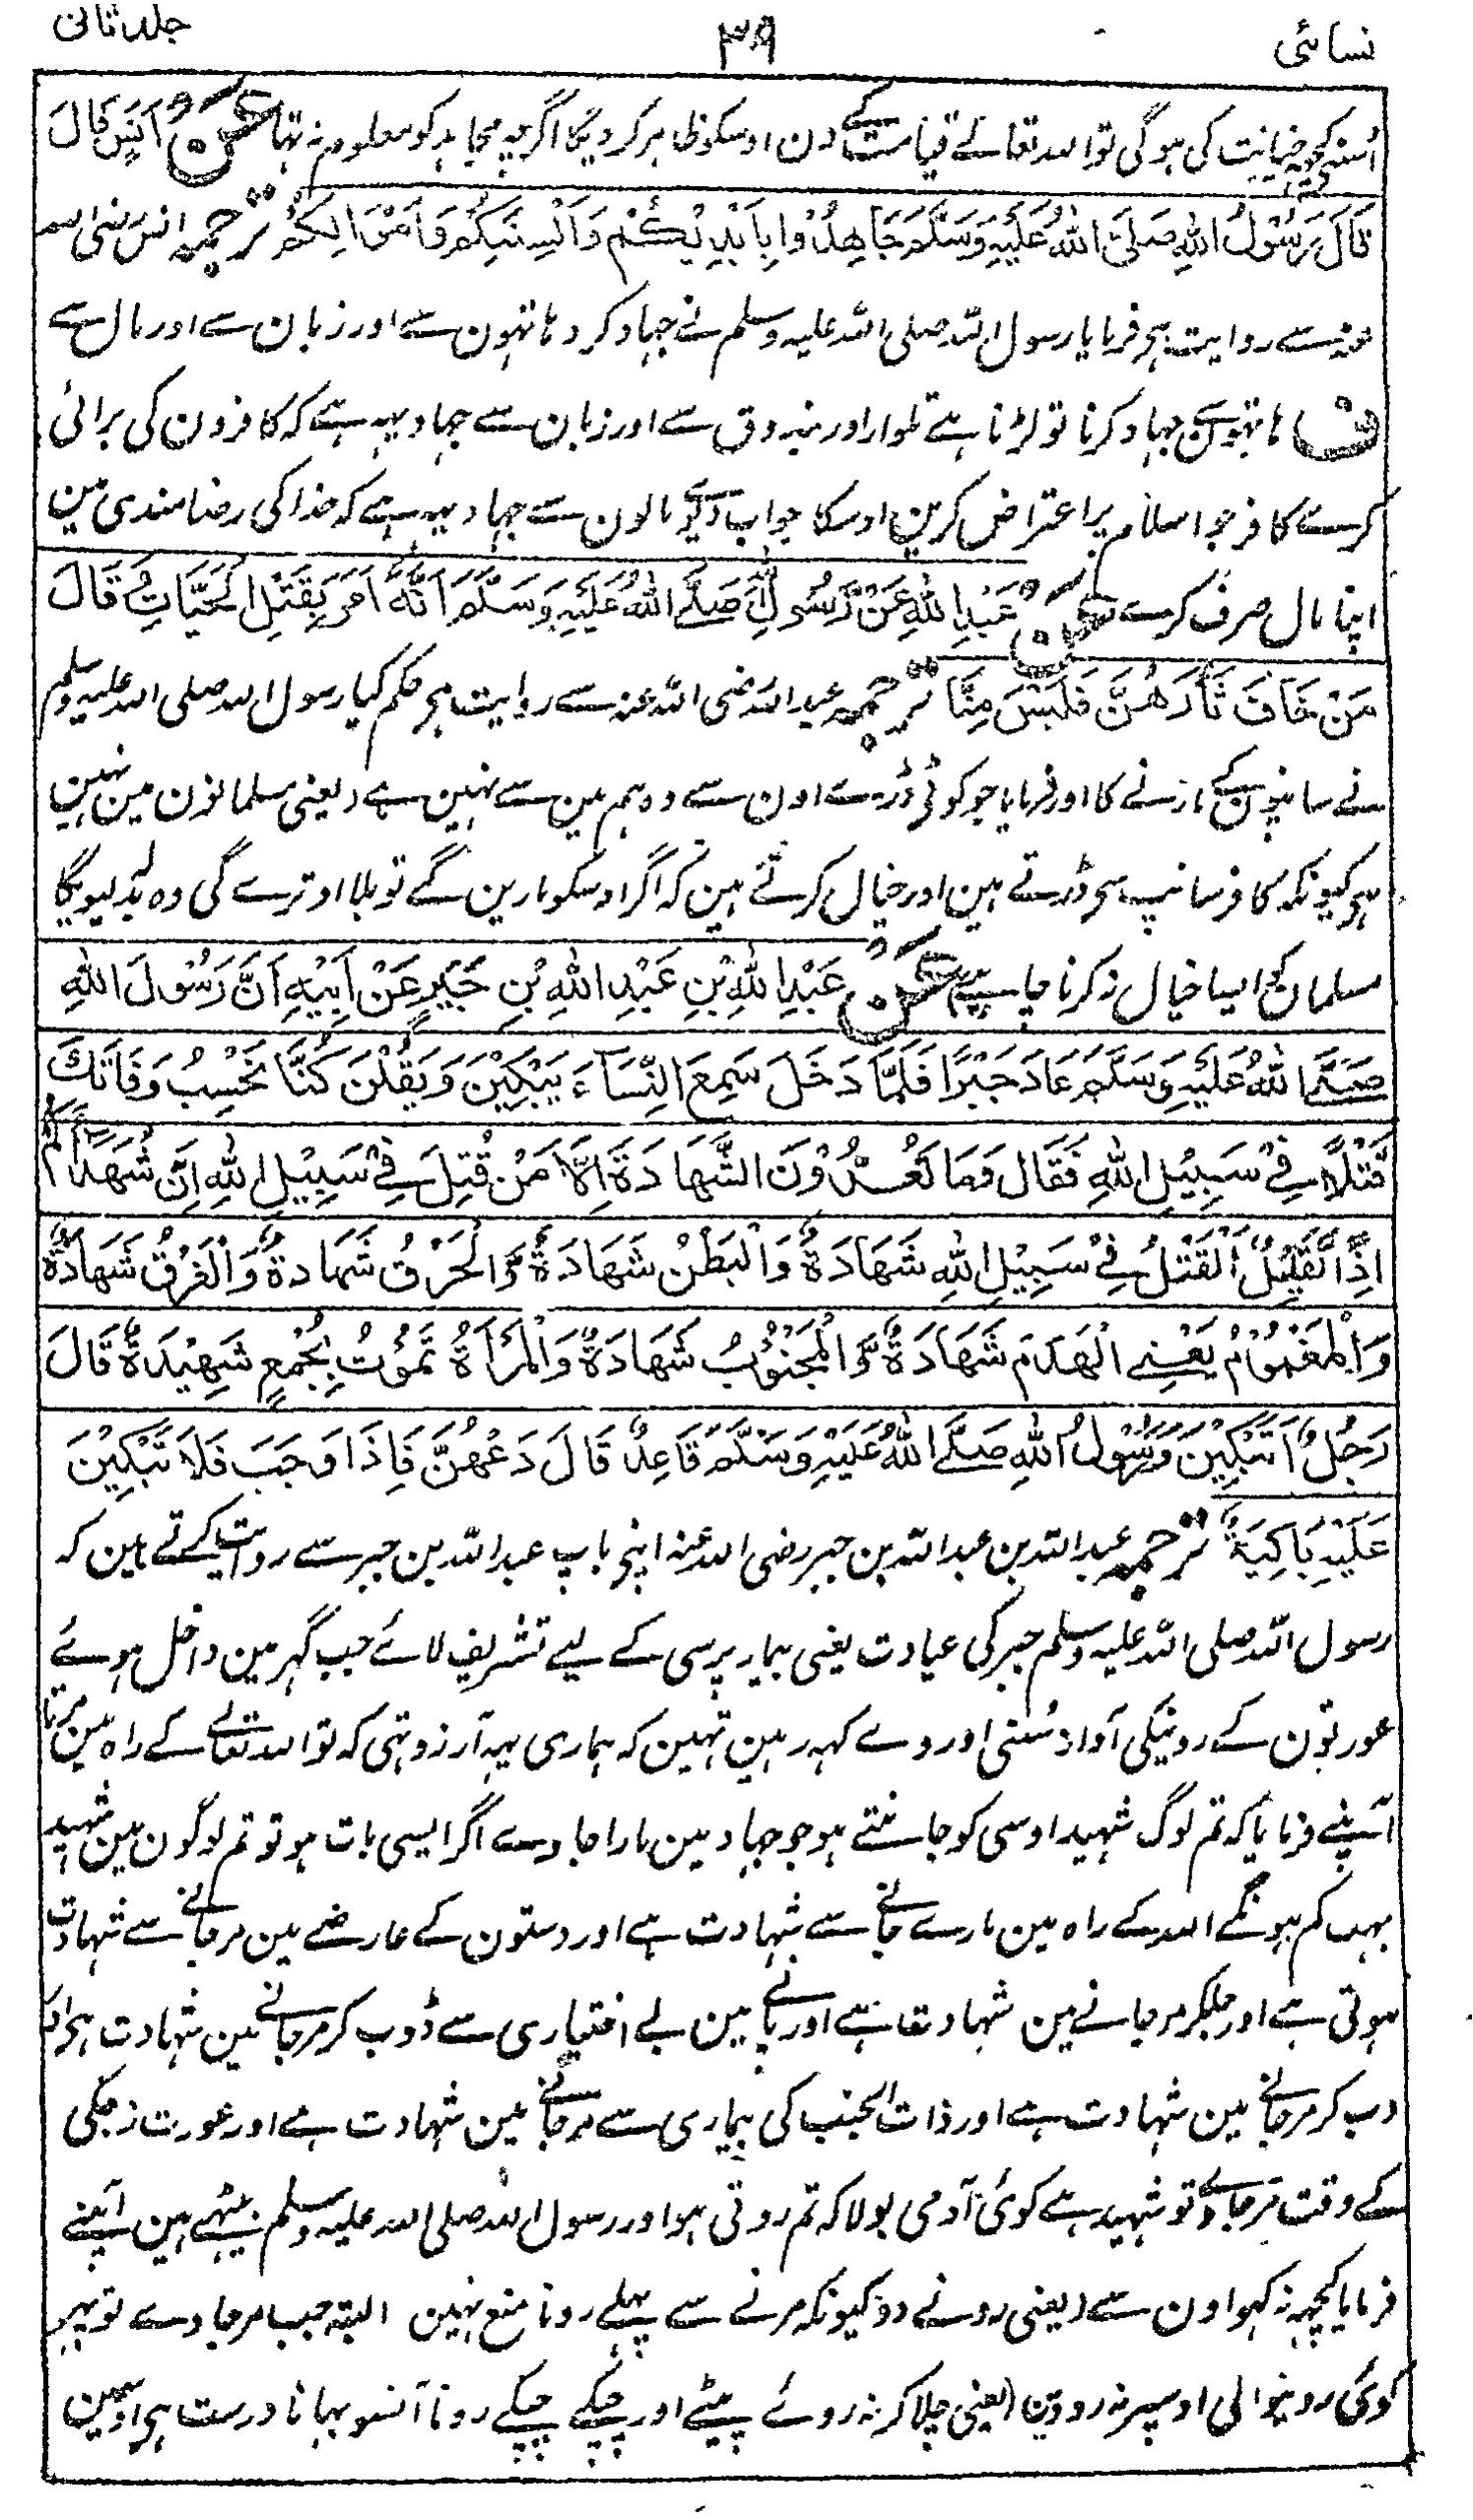 نسائی ۳۹ جلد ثانی
اسنے کچھ خیانت کی ہوگی تو اللہ تعالے قیامت کے دن اوسکو ظاہر کر دیگا اگرچہ مجاہد کو معلوم نہ تہا عَنْ اَنَسٍ قَالَ
قَالَ رَسُوْلُ اللهِ صَلَّى اللهُ عَلَيْهِ وَسَلَّمَ جَاهِدُوْا بِاَيْدِيْكُمْ وَاَلْسِنَتِكُمْ وَاَمْوَالِكُمْ ترجمہ انس رضی اللہ
عنہ سے روایت ہی فرمایا رسول اللہ صلی اللہ علیہ وسلم نے جہاد کرو ہاتہون سے اور زبان سے اور مال سے
ف ہاتہوں سے جہاد کرنا تو لڑنا ہے تلوار اور بندوق سے اور زبان سے جہاد یہہ ہے کہ کافرون کی برائی
کرے کافر جو اسلام پر اعتراض کرین اوسکا جواب دیوے مالون سے جہاد یہہ ہے کہ خدا کی رضامندی مین
اپنا مال صرف کرے عَنْ عَبْدِ اللهِ عَنْ رَسُوْلِ اللهِ صَلَّى اللهُ عَلَيْهِ وَسَلَّمَ اَنَّهُ اَمَرَ بِقَتْلِ الْحَيَّاتِ وَقَالَ
مَنْ خَافَ ثَأْرَهُنَّ فَلَيْسَ مِنَّا ترجمہ عبداللہ رضی اللہ عنہ سے روایت ہی حکم کیا رسول اللہ صلی اللہ علیہ وسلم
نے سانپوں کے مارنے کا اور فرمایا جو کوئی ڈرے اون سے وہ ہم مین سے نہین ہے (یعنی مسلمانون مین نہین
ہی کیونکہ کافر سانپ سی ڈرتے ہین اور خیال کرتے ہین کہ اگر اوسکو مارین گے تو بلا اوترے گی وہ بدلہ لیویگا
مسلمان کو ایسا خیال نہ کرنا چاہیے عَنْ عَبْدِ اللهِ بْنِ عَبْدِ اللهِ بْنِ جَبْرٍ عَنْ اَبِيْهِ اَنَّ رَسُوْلَ اللهِ
صَلَّى اللهُ عَلَيْهِ وَسَلَّمَ عَادَ جَبْرًا فَلَمَّا دَخَلَ سَمِعَ النِّسَآءَ يَبْكِيْنَ وَيَقُلْنَ كُنَّا نَحْسِبُ وَفَاتَكَ
قَتْلًا فِيْ سَبِيْلِ اللهِ فَقَالَ وَمَا تَعُدُّوْنَ الشَّهَادَةَ اِلَّا مَنْ قُتِلَ فِيْ سَبِيْلِ اللهِ اِنَّ شُهَدَآءَكُمْ
اِذًا لَقَلِيْلٌ اَلْقَتْلُ فِيْ سَبِيْلِ اللهِ شَهَادَةٌ وَالْبَطْنُ شَهَادَةٌ وَالْحَرَقُ شَهَادَةٌ وَالْغَرَقُ شَهَادَةٌ
وَالْمَغْمُوْمُ يَعْنِي الْهَدَمَ شَهَادَةٌ وَالْمَجْنُوْبُ شَهَادَةٌ وَالْمَرْأَةُ تَمُوْتُ بِجُمْعٍ شَهِيْدَةٌ قَالَ
رَجُلٌ اَتَبْكِيْنَ وَرَسُوْلُ اللهِ صَلَّى اللهُ عَلَيْهِ وَسَلَّمَ قَاعِدٌ قَالَ دَعْهُنَّ فَاِذَا وَجَبَ فَلَا تَبْكِيْنَ
عَلَيْهِ بَاكِيَةٌ ترجمہ عبداللہ بن عبداللہ بن جبر رضی اللہ عنہ اپنی باپ عبداللہ بن جبر سے روایت کرتے ہین کہ
رسول اللہ صلی اللہ علیہ وسلم جبر کی عیادت یعنی بیمار پرسی کے لیے تشریف لائے جب گہر مین داخل ہوئے
عورتون کے رونیکی آواز سنی اور وے کہہ رہین تہین کہ ہماری یہہ آرزو تہی کہ تو اللہ تعالے کے راہ مین مرتا
آپنے فرمایا کہ تم لوگ شہید اوسی کو جانتے ہو جو جہاد مین مارا جاوے اگر ایسی بات ہو تو تم لوگون مین شہید
بہت کم ہونگے اللہ کے راہ مین مارے جانے سے شہادت ہے اور دستون کے عارضے مین مر جانے سے شہادت
ہوتی ہے اور جلکر مر جانے مین شہادت ہے اور پانے مین بے اختیاری سے ڈوب کر مر جانے مین شہادت ہی اور
دب کر مر جانے مین شہادت ہے اور ذات الجنب کی بیماری سے مر جانے مین شہادت ہے اور عورت زچکی
کے وقت مر جاوے تو شہید ہے کوئی آدمی بولا کہ تم روتی ہو اور رسول اللہ صلی اللہ علیہ وسلم بیٹھے ہین آپنے
فرمایا کچھہ نہ کہو اون سے (یعنی رونے دو کیونکہ مرنے سے پہلے رونا منع نہین البتہ جب مر جاوے تو پہر
کوئی رونیوالی اوسپر نہ رووین (یعنی چلا کر نہ روئے پیٹے اور چپکے چپکے رونا آنسو بہانا درست ہی اوسمین